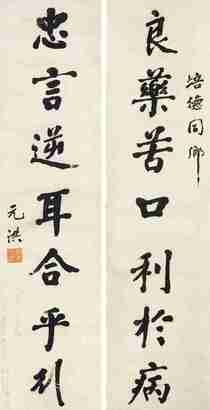 培德同鄉
良藥苦口利於病
忠言逆耳合乎利
元洪